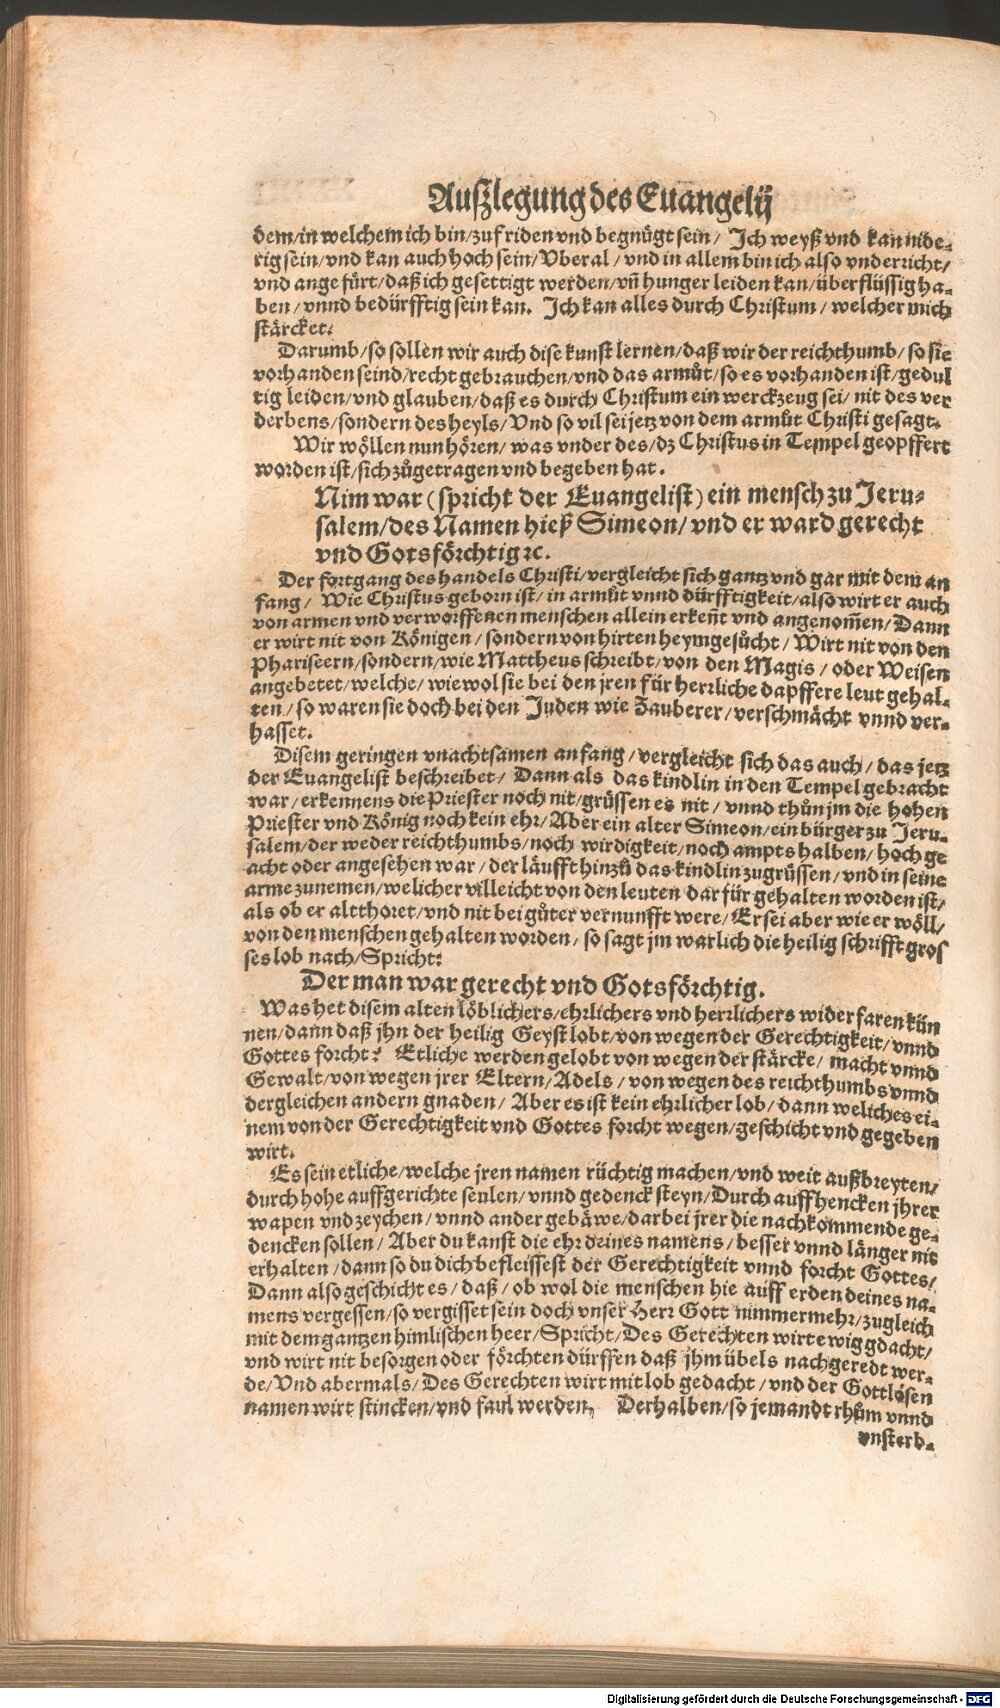 Auſzlegung des Euangelij
dem/in welchem ich bin/zufriden vnd begnügt sein/ Jch weyß vnd kan nide⸗
rig sein/vnd kan auch hoch sein/Vberal/vnd in allem bin ich also vnderricht/
vnd angefürt/daß ich gesettigt werden/vñ hunger leiden kan/überflüssig ha⸗
ben/vnnd bedürfftig sein kan. Jch kan alles durch Christum/welcher mich
stärcket.
Darumb/so sollen wir auch dise kunst lernen/daß wir der reichthumb/so sie
vorhanden seind/recht gebrauchen/vnd das armůt/so es vorhanden ist/gedul
tig leiden/vnd glauben/daß es durch Christum ein werckzeug sei/nit des ver
derbens/sondern des heyls/Vnd so vil sei jetz von dem armůt Christi gesagt.
Wir wöllen nun hören/was vnder des/dz Christus in Tempel geopffert
worden ist/sich zůgetragen vnd begeben hat.
Nim war (spricht der Euangelist) ein mensch zu Jeru⸗
salem/des Namen hieß Simeon/vnd er ward gerecht
vnd Gotsförchtig ꝛc.
Der fortgang des handels Christi/vergleicht sich gantz vnd gar mit dem an
fang/ Wie Christus geborn ist/in armůt vnnd dürfftigkeit/also wirt er auch
von armen vnd verworffenen menschen allein erkeñt vnd angenom̃en/Dann
er wirt nit von Königen/sondern von hirten heymgesůcht/Wirt nit von den
Phariseern/sondern/wie Mattheus schreibt/von den Magis/oder Weisen
angebetet/welche/wiewol sie bei den jren für herrliche dapffere leut gehal⸗
ten/so waren sie doch bei den Juden wie Zauberer/verschmächt vnnd ver⸗
hasset.
Disem geringen vnachtsamen anfang/vergleicht sich das auch/das jetz
der Euangelist beschreibet/ Dann als das kindlin in den Tempel gebracht
war/erkennens die Priester noch nit/grüssen es nit/vnnd thůn jm die hohen
Priester vnd König noch kein ehr/Aber ein alter Simeon/ein bürger zu Jeru⸗
salem/der weder reichthumbs/noch wirdigkeit/noch ampts halben/hoch ge
acht oder angesehen war/der läufft hinzů das kindlin zu grüssen/vnd in seine
arme zunemen/welicher villeicht von den leuten darfür gehalten worden ist/
als ob er altthoret/vnd nit bei gůter vernunfft were/Er sei aber wie er wöll/
von den menschen gehalten worden/so sagt jm warlich die heilig schrifft gros
ses lob nach/Spricht:
Der man war gerecht vnd Gotsförchtig.
Was het disem alten löblichers/ehrlichers vnd herrlichers widerfaren kün
nen/dann daß jhn der heilig Geyst lobt/von wegen der Gerechtigkeit/vnnd
Gottes forcht? Etliche werden gelobt von wegen der stärcke/macht vnnd
Gewalt/von wegen jrer Eltern/Adels/von wegen des reichthumbs vnnd
dergleichen andern gnaden/Aber es ist kein ehrlicher lob/dann weliches ei⸗
nem von der Gerechtigkeit vnd Gottes forcht wegen/geschicht vnd gegeben
wirt.
Es sein etliche/welche jren namen rüchtig machen/vnd weit außbreyten/
durch hohe auffgerichte seulen/vnnd gedenck steyn/Durch auffhencken jhrer
wapen vnd zeychen/vnnd ander gebäwe/darbei jrer die nachkommende ge⸗
dencken sollen/Aber du kanst die ehr deines namens/besser vnnd länger nit
erhalten/dann so du dich befleissest der Gerechtigkeit vnnd forcht Gottes/
Dann also geschicht es/daß/ob wol die menschen hie auff erden deines na⸗
mens vergessen/so vergisset sein doch vnser Herr Gott nimmermehr/zugleich
mit dem gantzen himlischen heer/Spricht/Des Gerechten wirt ewig gdacht/
vnd wirt nit besorgen oder förchten dürffen daß jhm übels nachgeredt wer⸗
de/Vnd abermals/Des Gerechten wirt mit lob gedacht/vnd der Gottlosen
namen wirt stincken/vnd faul werden. Derhalben/so jemandt rhům vnnd
vnsterb⸗
Digitalisierung gefördert durch die Deutsche Forschungsgemeinschaft - DFG